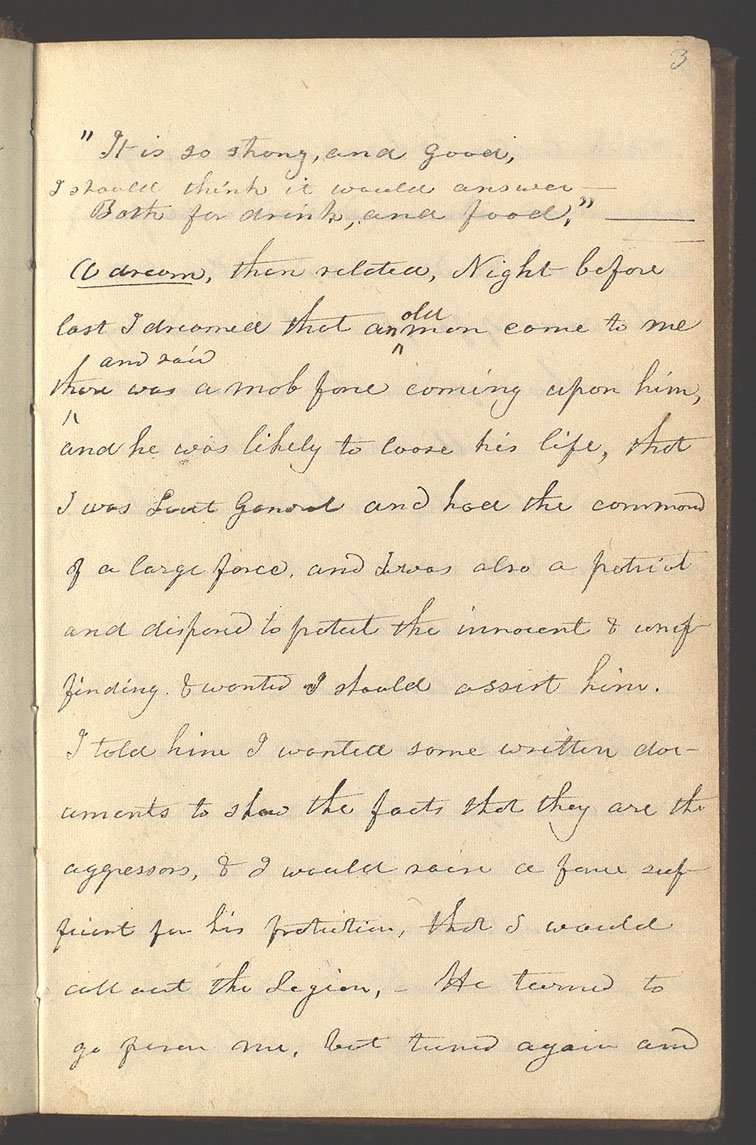 3
"It is so strong, and good,
I should think it would answer —
Both for drink, and food," ———
A dream, then related, Night before
last I dreamed that an old man come to me
and said there was a mob force coming upon him,
and he was likely to loose his life, that
I was Lieut General and had the command
of a large force, and I was also a patriot
and disposed to protect the innocent & unof-
finding. & wanted I should assist him.
I told him I wanted some written doc-
uments to show the facts that they are the
aggressors, & I would raise a force suf-
ficient for his protection, that I would
call out the Legion, — He turned to
go from me, but turned again and